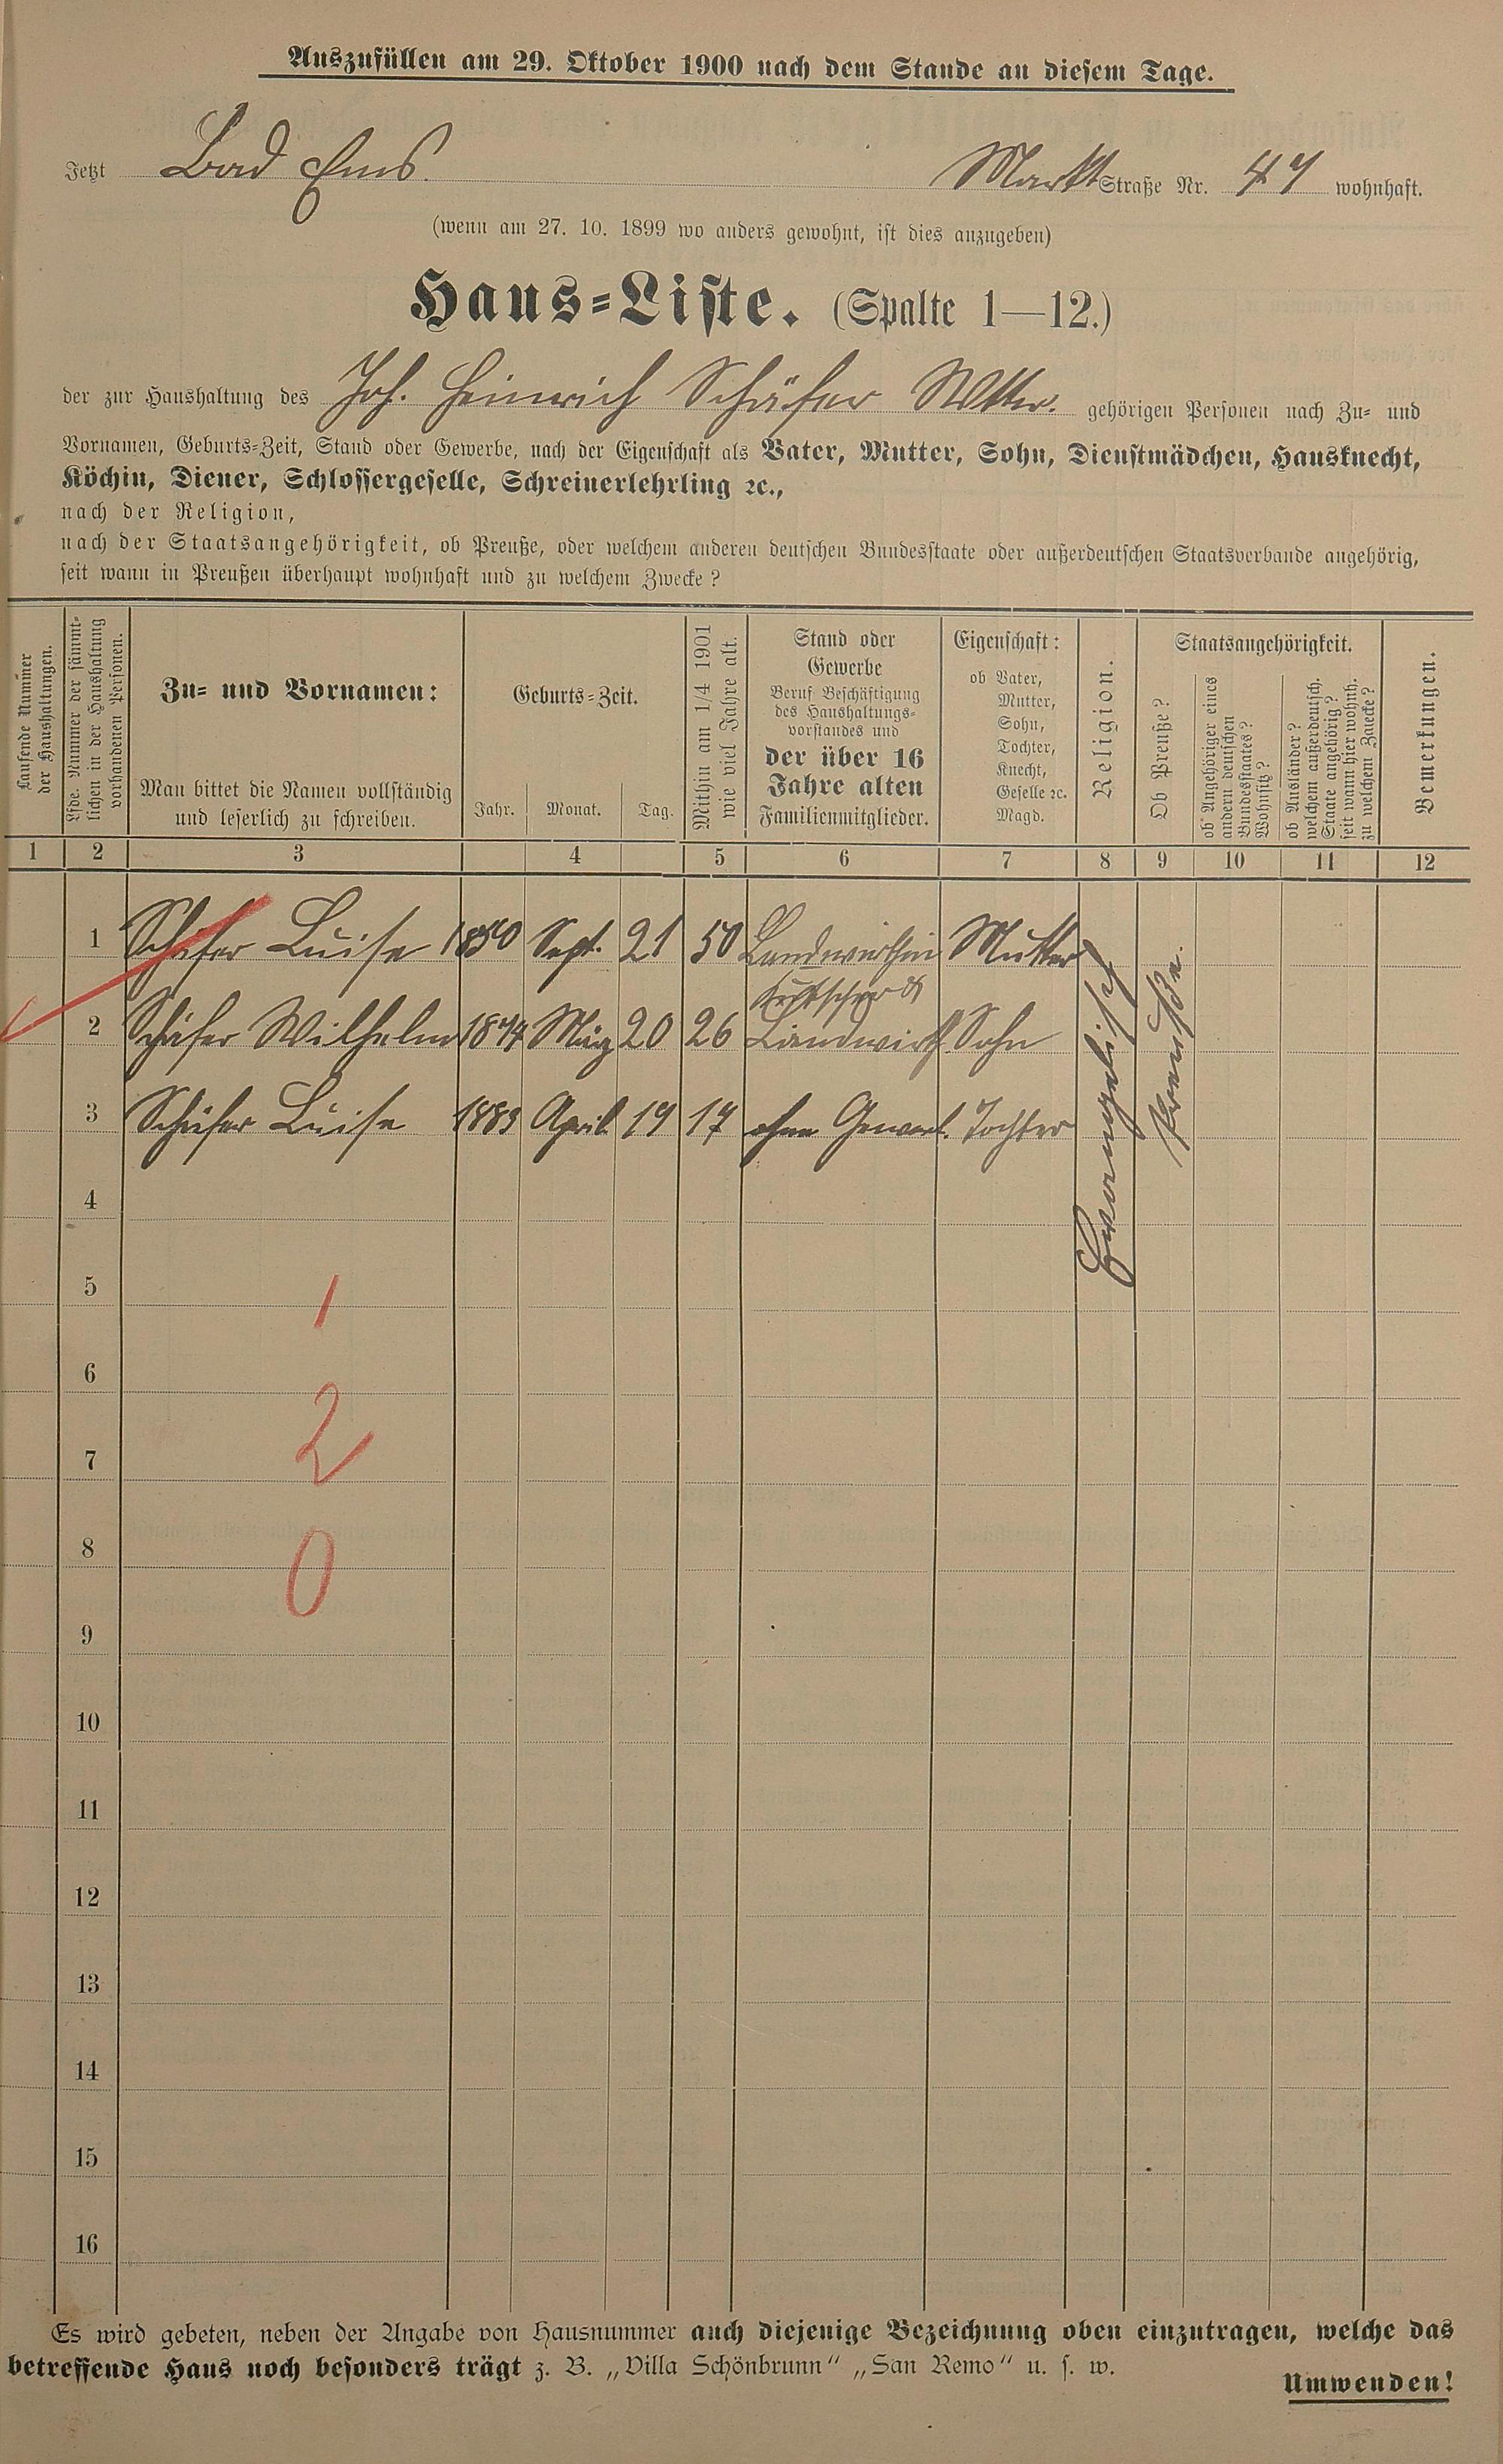 Auszufüllen am 29. Oktober 1900 nach dem Stande an diesem Tage.
Jetzt Bad Ems. Markt Straße Nr. 47 wohnhaft.
(wenn am 27. 10. 1899 wo anders gewohnt, ist dies anzugeben)
Haus-Liste. (Spalte 1—12.)
der zur Haushaltung des Joh. Heinrich Schäfer Wttw. gehörigen Personen nach Zu- und
Vornamen, Geburts-Zeit, Stand oder Gewerbe, nach der Eigenschaft als Vater, Mutter, Sohn, Dienstmädchen, Hausknecht,
Köchin, Diener, Schlossergeselle, Schreinerlehrling ꝛc.,
nach der Religion,
nach der Staatsangehörigkeit, ob Preuße, oder welchem anderen deutschen Bundesstaate oder außerdeutschen Staatsverbande angehörig,
seit wann in Preußen überhaupt wohnhaft und zu welchem Zwecke?
Laufende Nummer
der Haushaltungen.
Lfde. Nummer der sämmt-
lichen in der Haushaltung
vorhandenen Personen.
Zu- und Vornamen:
Man bittet die Namen vollständig
und leserlich zu schreiben.
Geburts-Zeit.
Jahr. Monat. Tag.
Mithin am 1/4 1901
wie viel Jahre alt.
Stand oder
Gewerbe
Beruf Beschäftigung
des Haushaltungs-
vorstandes und
der über 16
Jahre alten
Familienmitglieder.
Eigenschaft:
ob Vater,
Mutter,
Sohn,
Tochter,
Knecht,
Geselle ꝛc.
Magd.
Religion.
Staatsangehörigkeit.
Ob Preuße?
ob Angehöriger eines
andern deutschen
Bundesstaates?
Wohnsitz?
ob Ausländer?
welchem außerdeutsch.
Staate angehörig?
seit wann hier wohnh.
zu welchem Zwecke?
Bemerkungen.
1 2 3 4 5 6 7 8 9 10 11 12
1 Schäfer Luise 1850 Sept. 21 50 Landwirthin Mutter
Kutscher &
2 Schäfer Wilhelm 1874 März 20 26 Landwirth Sohn
3 Schäfer Luise 1883 April 19 17 ohne Gewerb. Tochter
Evangelisch
Preuße.
4
5
1
6
2
7
8
0
9
10
11
12
13
14
15
16
Es wird gebeten, neben der Angabe von Hausnummer auch diejenige Bezeichnung oben einzutragen, welche das
betreffende Haus noch besonders trägt z. B. „Villa Schönbrunn“ „San Remo“ u. s. w.
Umwenden!